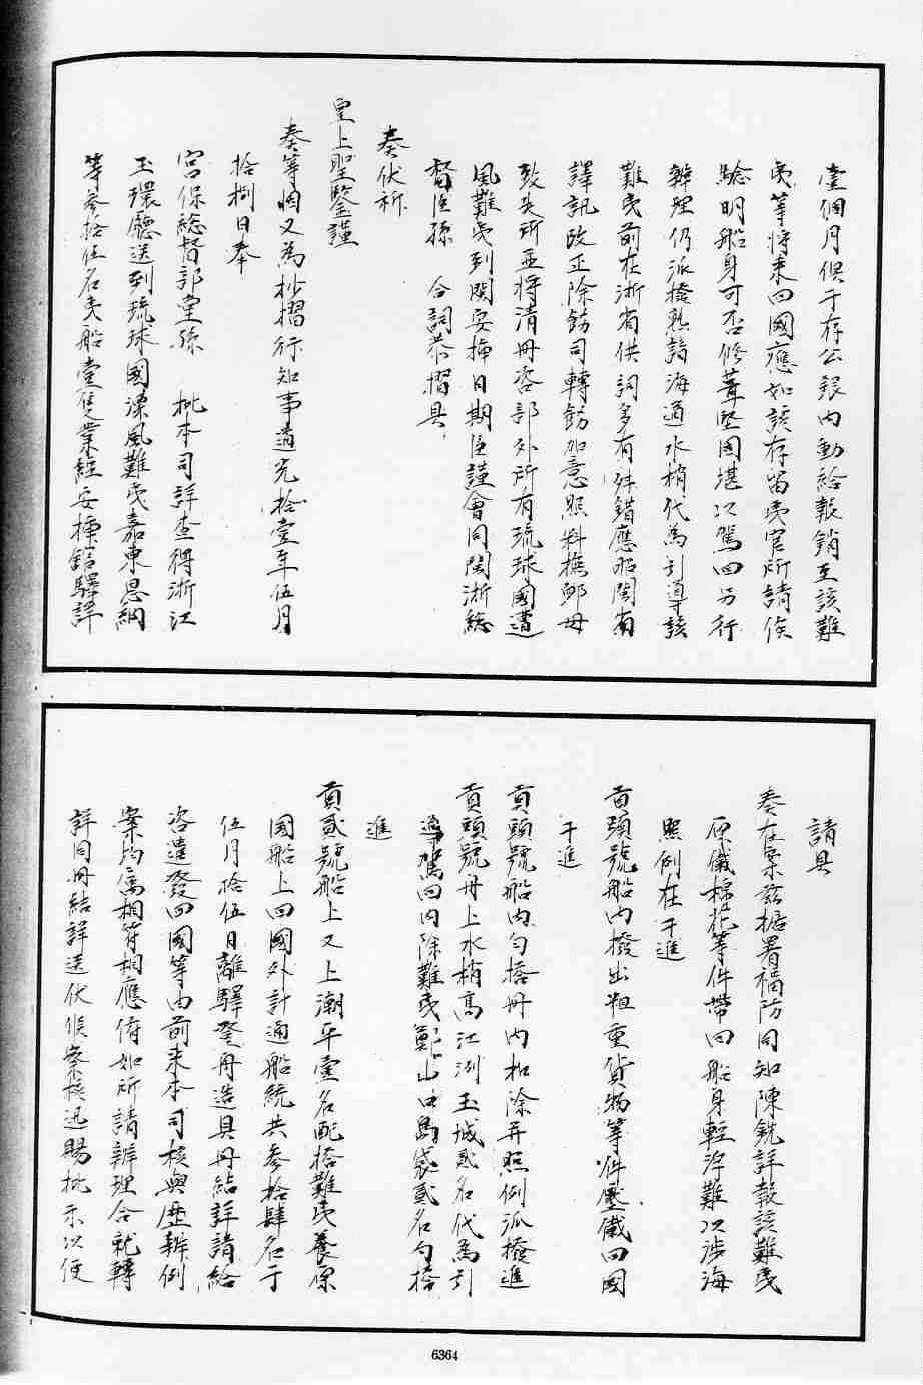 壹個月俱于存公銀內動給報銷至該難
夷等將來回國應如該存留夷官所請俟
驗明船身可否修葺堅固堪以駕回另行
辦理仍派撥熟諳海道水梢代為引導該
難夷前在浙省供詞多有舛錯應飭閩省
譯訊改正除飭司轉飭加意照料撫卹毋
致失所並將清冊咨部外所有琉球國遭
風難夷到閩安插日期臣謹會同閩浙總
督臣孫 合詞恭摺具
奏伏祈
皇上聖鑒謹
奏等因又為抄摺行知事道光拾壹年伍月
拾捌日奉
宮保總督部堂孫 批本司詳查得浙江
玉環廳送到琉球國漂風難夷嘉東恩納
等參拾伍名夷船壹隻業經安插館驛詳
請具
奏在案茲據署福防同知陳銑詳報該難夷
原儎棉花等件帶回船身輕浮難以涉海
照例在于進
貢頭號船內撥出粗重貨物等件壓儎回國
于進
貢頭號船內勻搭冊內扣除并照例派撥進
貢頭號舟上水梢高江洌玉城貳名代為引
導駕回內除難夷鄭山中島袋貳名勻搭
進
貢貳號船上又上潮平壹名配搭難夷養保
國船上回國外計通船統共參拾肆名于
伍月拾伍日離驛登舟造具冊結詳請給
咨遣發回國等由前來本司核與歷辦例
案均屬相符相應俯如所請辦理合就轉
詳同冊結詳送伏候察核迅賜批示以便
6364